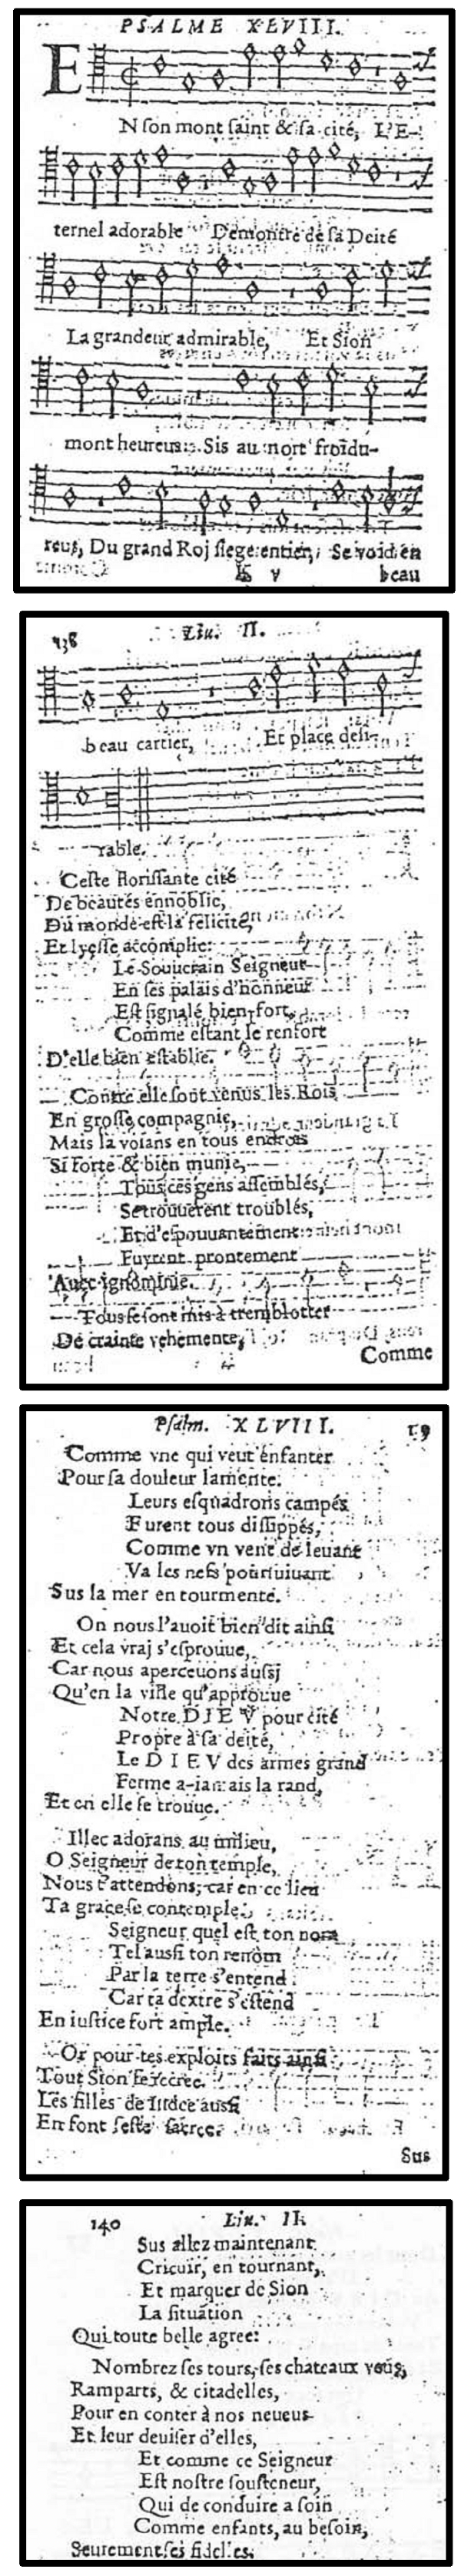 PSALME XLVIII.
EN son mont saint & sa cité, L'E-
ternel adorable Demontre de sa Deité
La grandeur admirable, Et Sion
mont heureus Sis au nort froidu-
reus, Du grand Roj siege entier, Se void en
beau
138 Liu. II.
beau cartier, Et place desi-
rable.
Ceste florissante cité
De beautés ennoblie,
Du monde est la felicité,
Et lyesse accomplie:
Le Souuerain Seigneur
En ses palais d'honneur
Est signalé bien fort,
Comme estant le renfort
D'elle bien establie.
Contre elle sont venus les Rois
En grosse compagnie,
Mais la voians en tous endrois
Si forte & bien munie,
Tous ces gens assemblés,
Se trouuerent troublés,
Et d'espouuantement
Fuyrent prontement
Auec ignominie.
Tous se sont mis à tremblotter
De crainte vehemente,
Comme
Psalm. XLVIII.
Comme vne qui veut enfanter
Pour sa douleur lamente.
Leurs esquadrons campés
Furent tous dissippés,
Comme vn vent de leuant
Va les nefs poursuiuant
Sus la mer en tourmente.
On nous l'auoit bien dit ainsi
Et cela vraj s'esprouue,
Car nous aperceuons aussj
Qu'en la ville qu'approuue
Notre DIEV pour cité
Propre à sa deité,
Le DIEV des armes grand
Ferme a-iamais la rand,
Et en elle se trouue.
Illec adorans au milieu,
O Seigneur de ton temple,
Nous t'attendons, car en ce lieu
Ta grace se contemple.
Seigneur quel est ton nom
Tel aussi ton renom
Par la terre s'entend
Car ta dextre s'estend
En iustice fort ample.
Or pour tes exploits faits ainsi
Tout Sion se recree.
Les filles de Iudee aussi
En font feste sacree.
Sus
140 Liu. II.
Sus allez maintenant
Circuir, en tournant,
Et marquer de Sion
La situation
Qui toute belle agree:
Nombrez ses tours, ses chateaux veus,
Ramparts, & citadelles,
Pour en conter à nos neueus
Et leur deuiser d'elles,
Et comme ce Seigneur
Est nostre sousteneur,
Qui de conduire a soin
Comme enfants, au besoin,
Seurement ses fidelles.